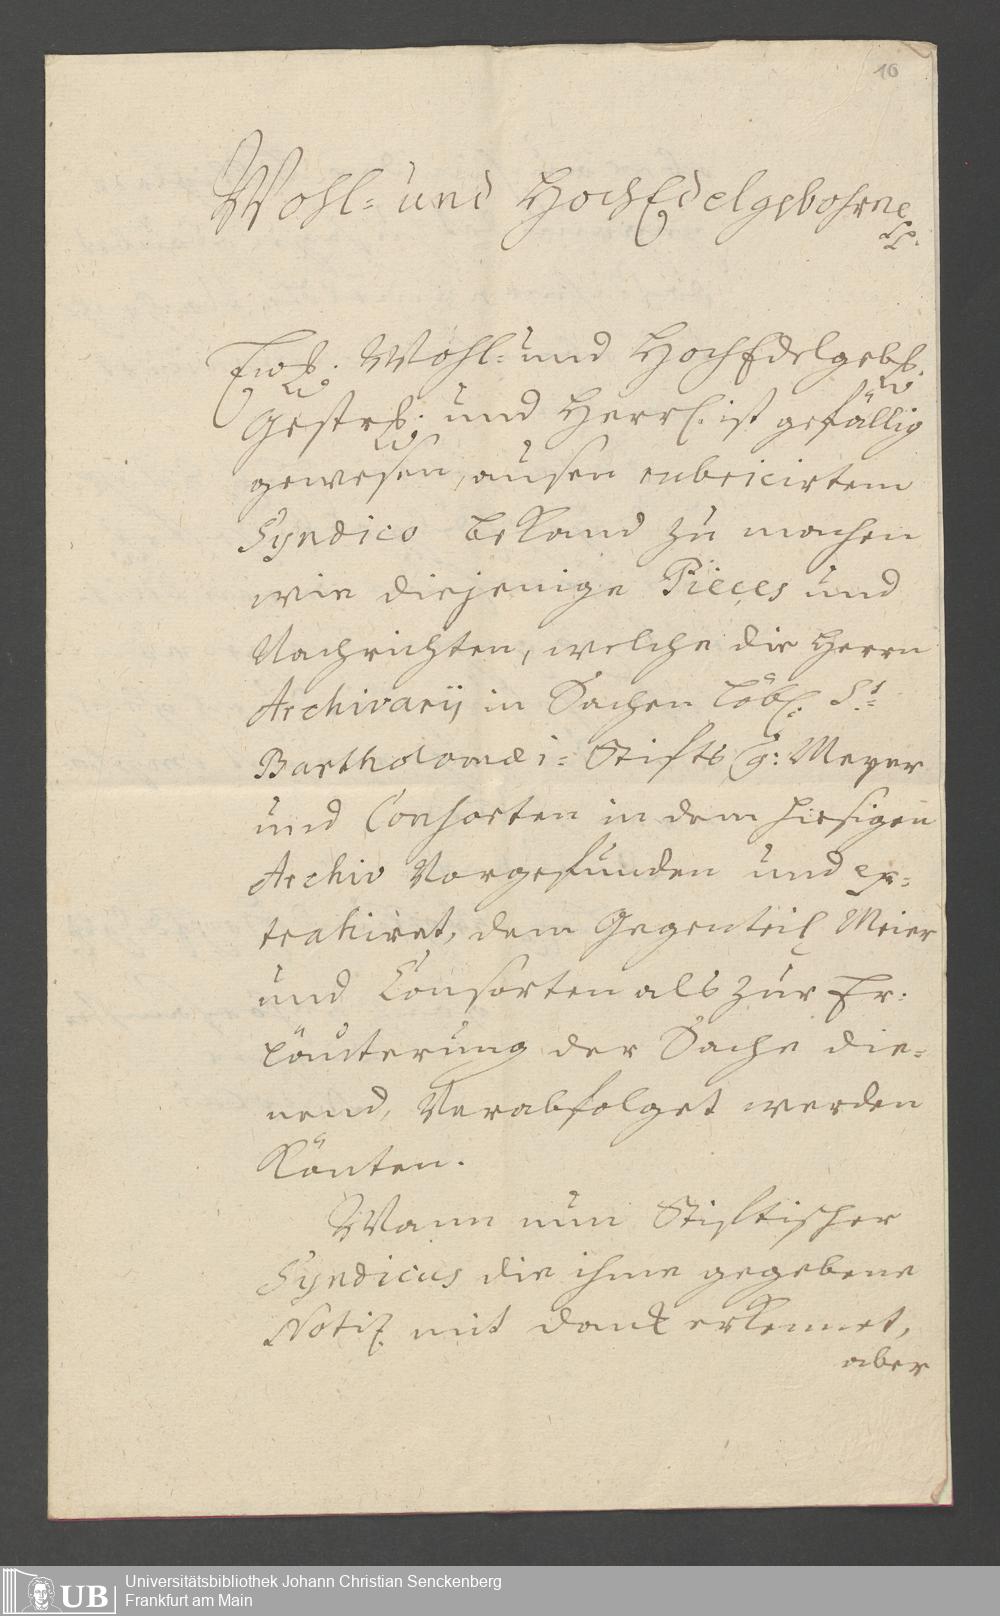 10
Wohl- und HochEdelgebohrne
Ewß. Wohl- und HochEdelgebß.
Gestrß. und Herrl. ist gefällig
gewesen, außen rubricirtem
Syndico bekand zu machen
wie diejenige Pieçes und
Nachrichten, welche die Herrn
Archivarij in Sachen Löbl. St.
Bartholomæi- Stifts Cg: Meyer
und Consorten in dem hiesigen
Archiv Vorgefunden und ex-
trahiret, dem Gegentheil Meier
und Consorten als zur Er-
läuterung der Sache die-
nend, Verabfolget werden
könten.
Wann nun Stiftischer
Syndicus die ihme gegebene
Notiz mit danck erkennet,
aber
UB
Universitätsbibliothek Johann Christian Senckenberg
Frankfurt am Main